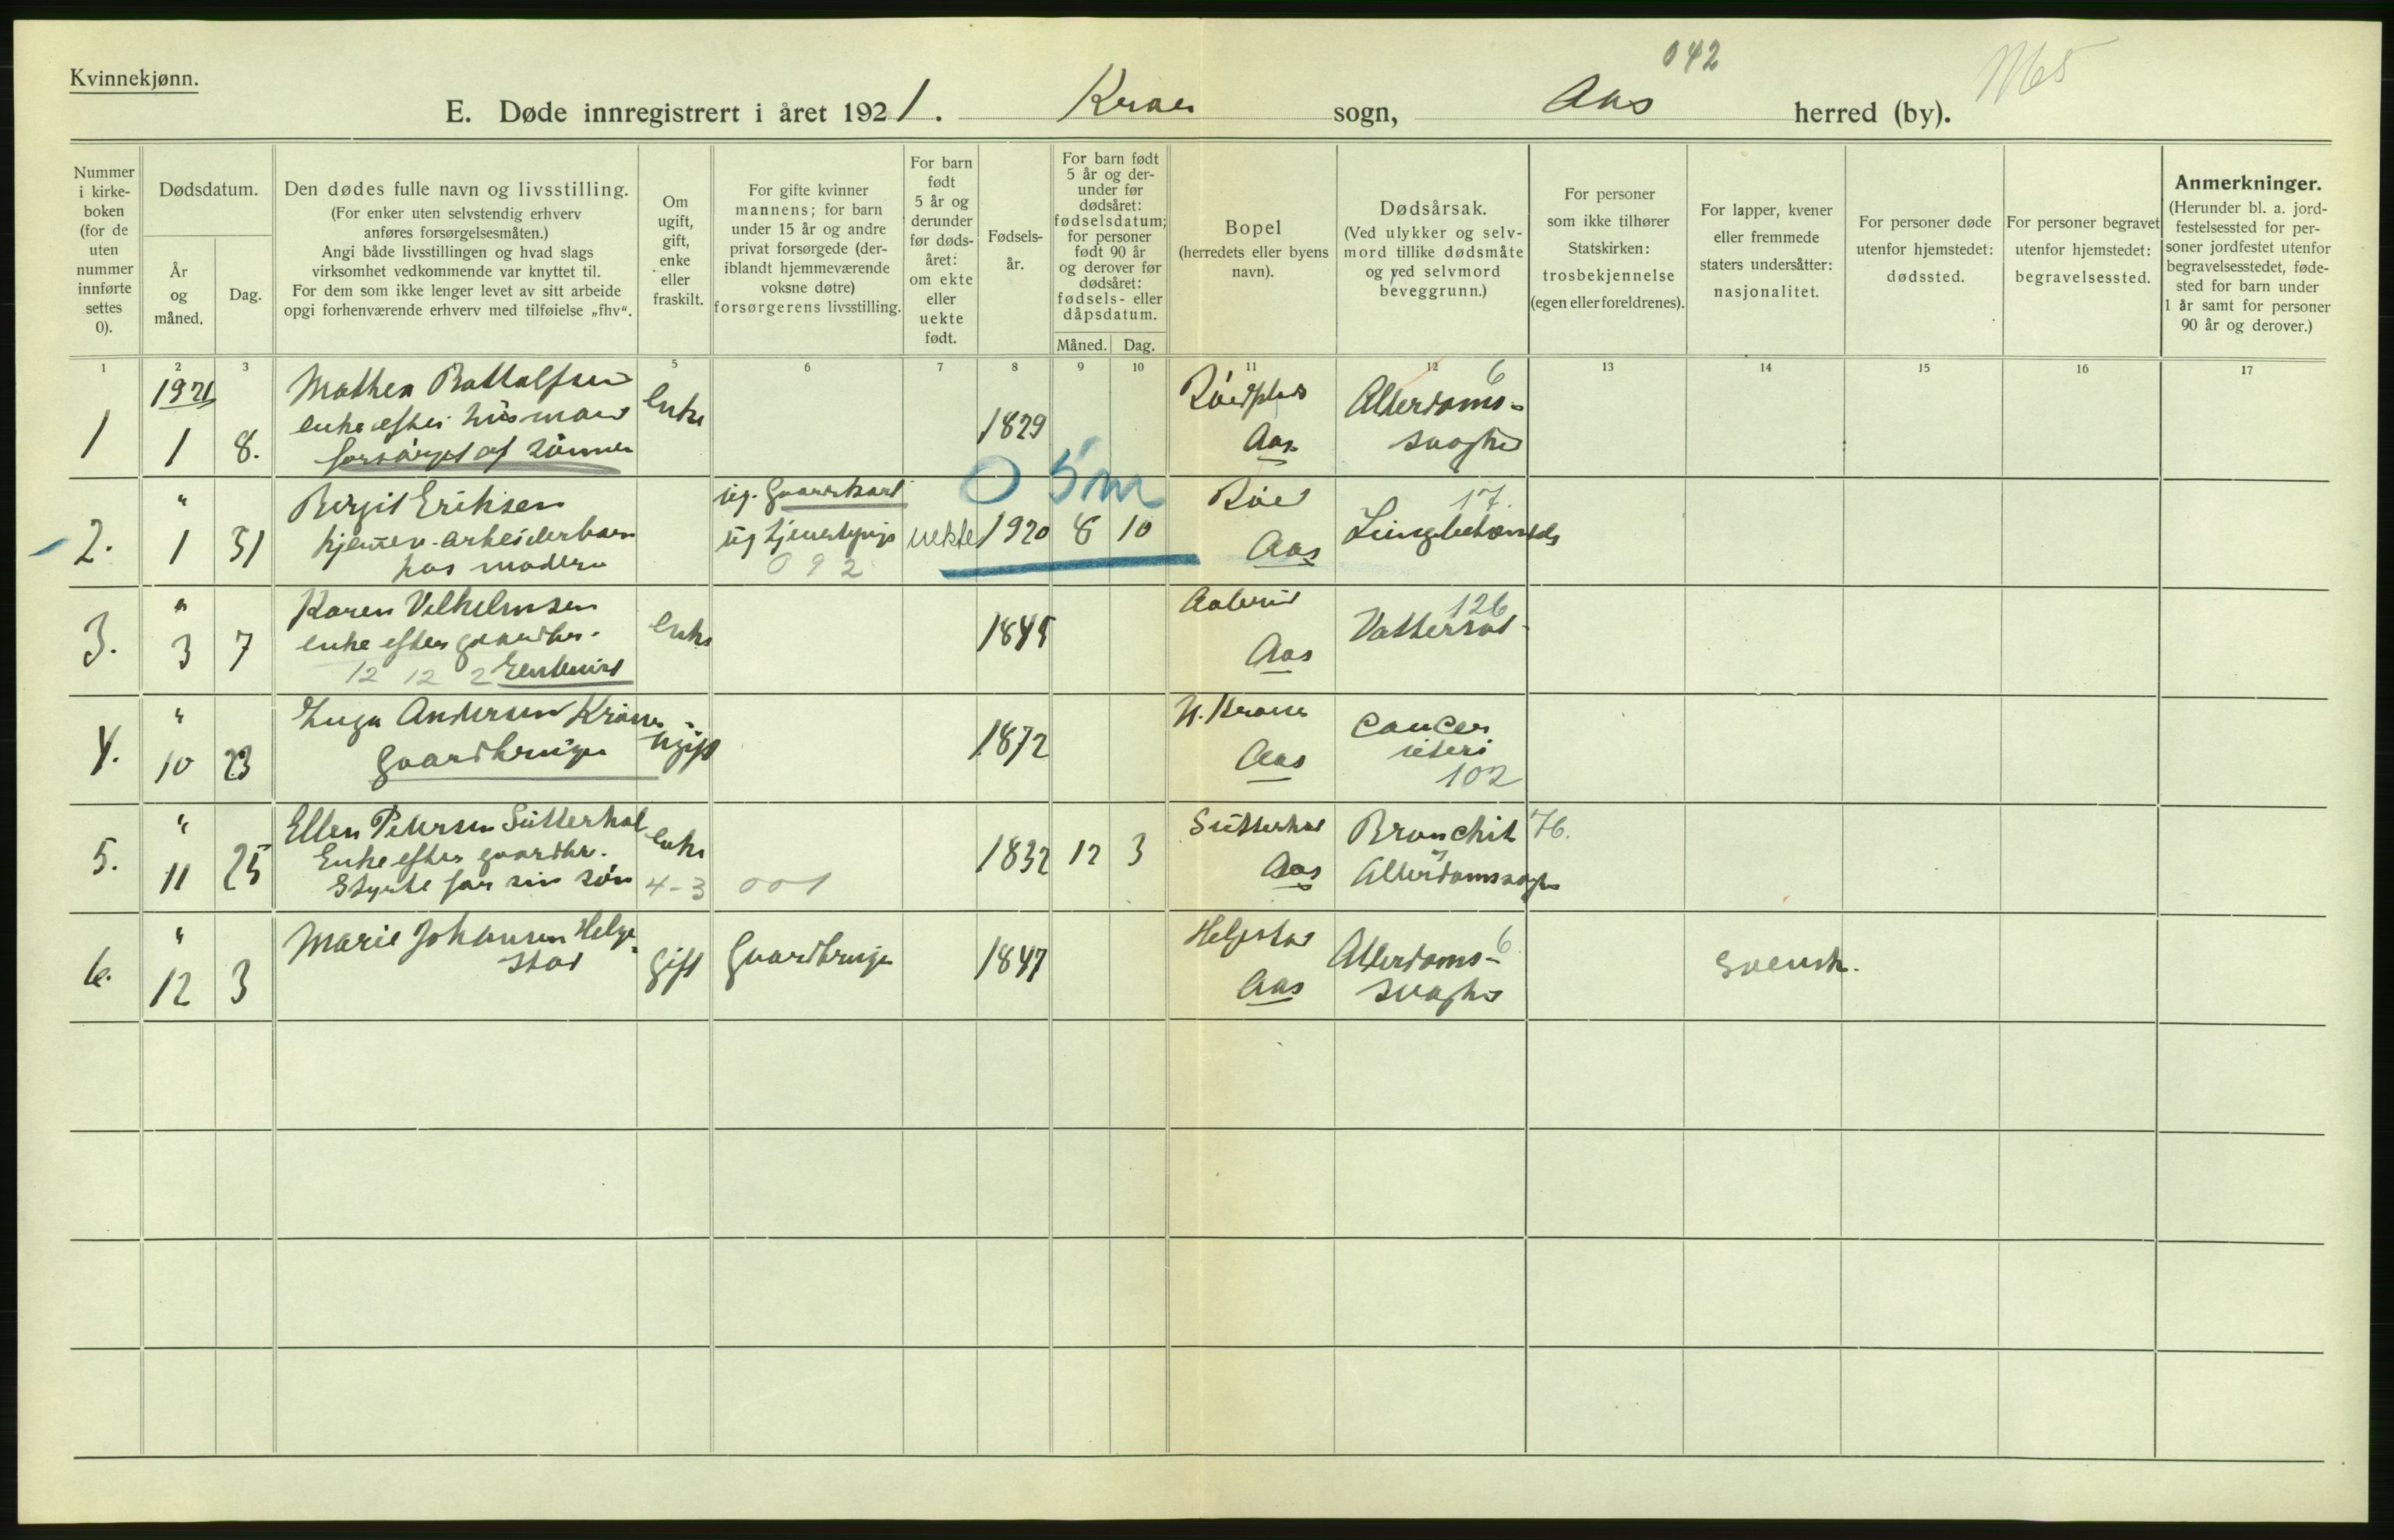 Kvinnekjønn.
042
E. Døde innregistrert i året 1921. Kraer sogn, Aas herred (by).
Nummer i kirkeboken (for de uten nummer innførte settes 0).
Dødsdatum.
År og måned.
Dag.
Den dødes fulle navn og livsstilling.
(For enker uten selvstendig erhverv
anføres forsørgelsesmåten.)
Angi både livsstillingen og hvad slags
virksomhet vedkommende var knyttet til.
For dem som ikke lenger levet av sitt arbeide
opgi forhenværende erhverv med tilføielse „fhv“.
Om
ugift,
gift,
enke
eller
fraskilt.
For gifte kvinner
mannens; for barn
under 15 år og andre
privat forsørgede (der-
iblandt hjemmeværende
voksne døtre)
forsørgerens livsstilling.
For barn
født
5 år og
derunder
før døds-
året:
om ekte
eller
uekte
født.
Fødsels-
år.
For barn født
5 år og der-
under før
dødsåret:
fødselsdatum;
for personer
født 90 år
og derover før
dødsåret:
fødsels- eller
dåpsdatum.
Måned. Dag.
Bopel
(herredets eller byens
navn).
Dødsårsak.
(Ved ulykker og selv-
mord tillike dødsmåte
og ved selvmord
beveggrunn.)
For personer
som ikke tilhører
Statskirken:
trosbekjennelse
(egen eller foreldrenes).
For lapper, kvener
eller fremmede
staters undersåtter:
nasjonalitet.
For personer døde
utenfor hjemstedet:
dødssted.
For personer begravet
utenfor hjemstedet:
begravelsessted.
Anmerkninger.
(Herunder bl. a. jord-
festelsessted for per-
soner jordfestet utenfor
begravelsesstedet, føde-
sted for barn under
1 år samt for personer
90 år og derover.)
1 2 3 5 6 7 8 9 10 11 12 13 14 15 16 17
1921
1 1 8.
Mathea
enke efter husmand
forsørget af sønner
enke
1829
Aas
6
Alderdoms-
svaghed
2. " 1 31
Birgit Eriksen
hjemmev. arbeiderbarn
hos moderen
ug. Gaardkarl
ug tjenestepige
092
uekte
1920 8 10
0 5 m
Røed
Aas
17.
Lungebetændels
3. " 3 7
Karen Vilhelmsen
enke efter gaardbr.
12 12 2
enke
1845
Aas
126
Vattersot
4. " 10 23
Inga Andersen Kraer
Gaardbruger
ugift
1872
N. Kraer
Aas
Cancer
uteri
102
5. " 11 25
Ellen Petersen Sutterhol
Enke efter gaardbr.
Styrte for sin søn
enke
4-3 001
1832 12 3
Sutterhol
Aas
Bronchit 76.
Alderdomssvaghe
6. " 12 3
Marie Johansen Helge-
stad
gift
Gaardbruger
1847
Helgestad
Aas
6
Alderdoms-
svaghed
Svensk.